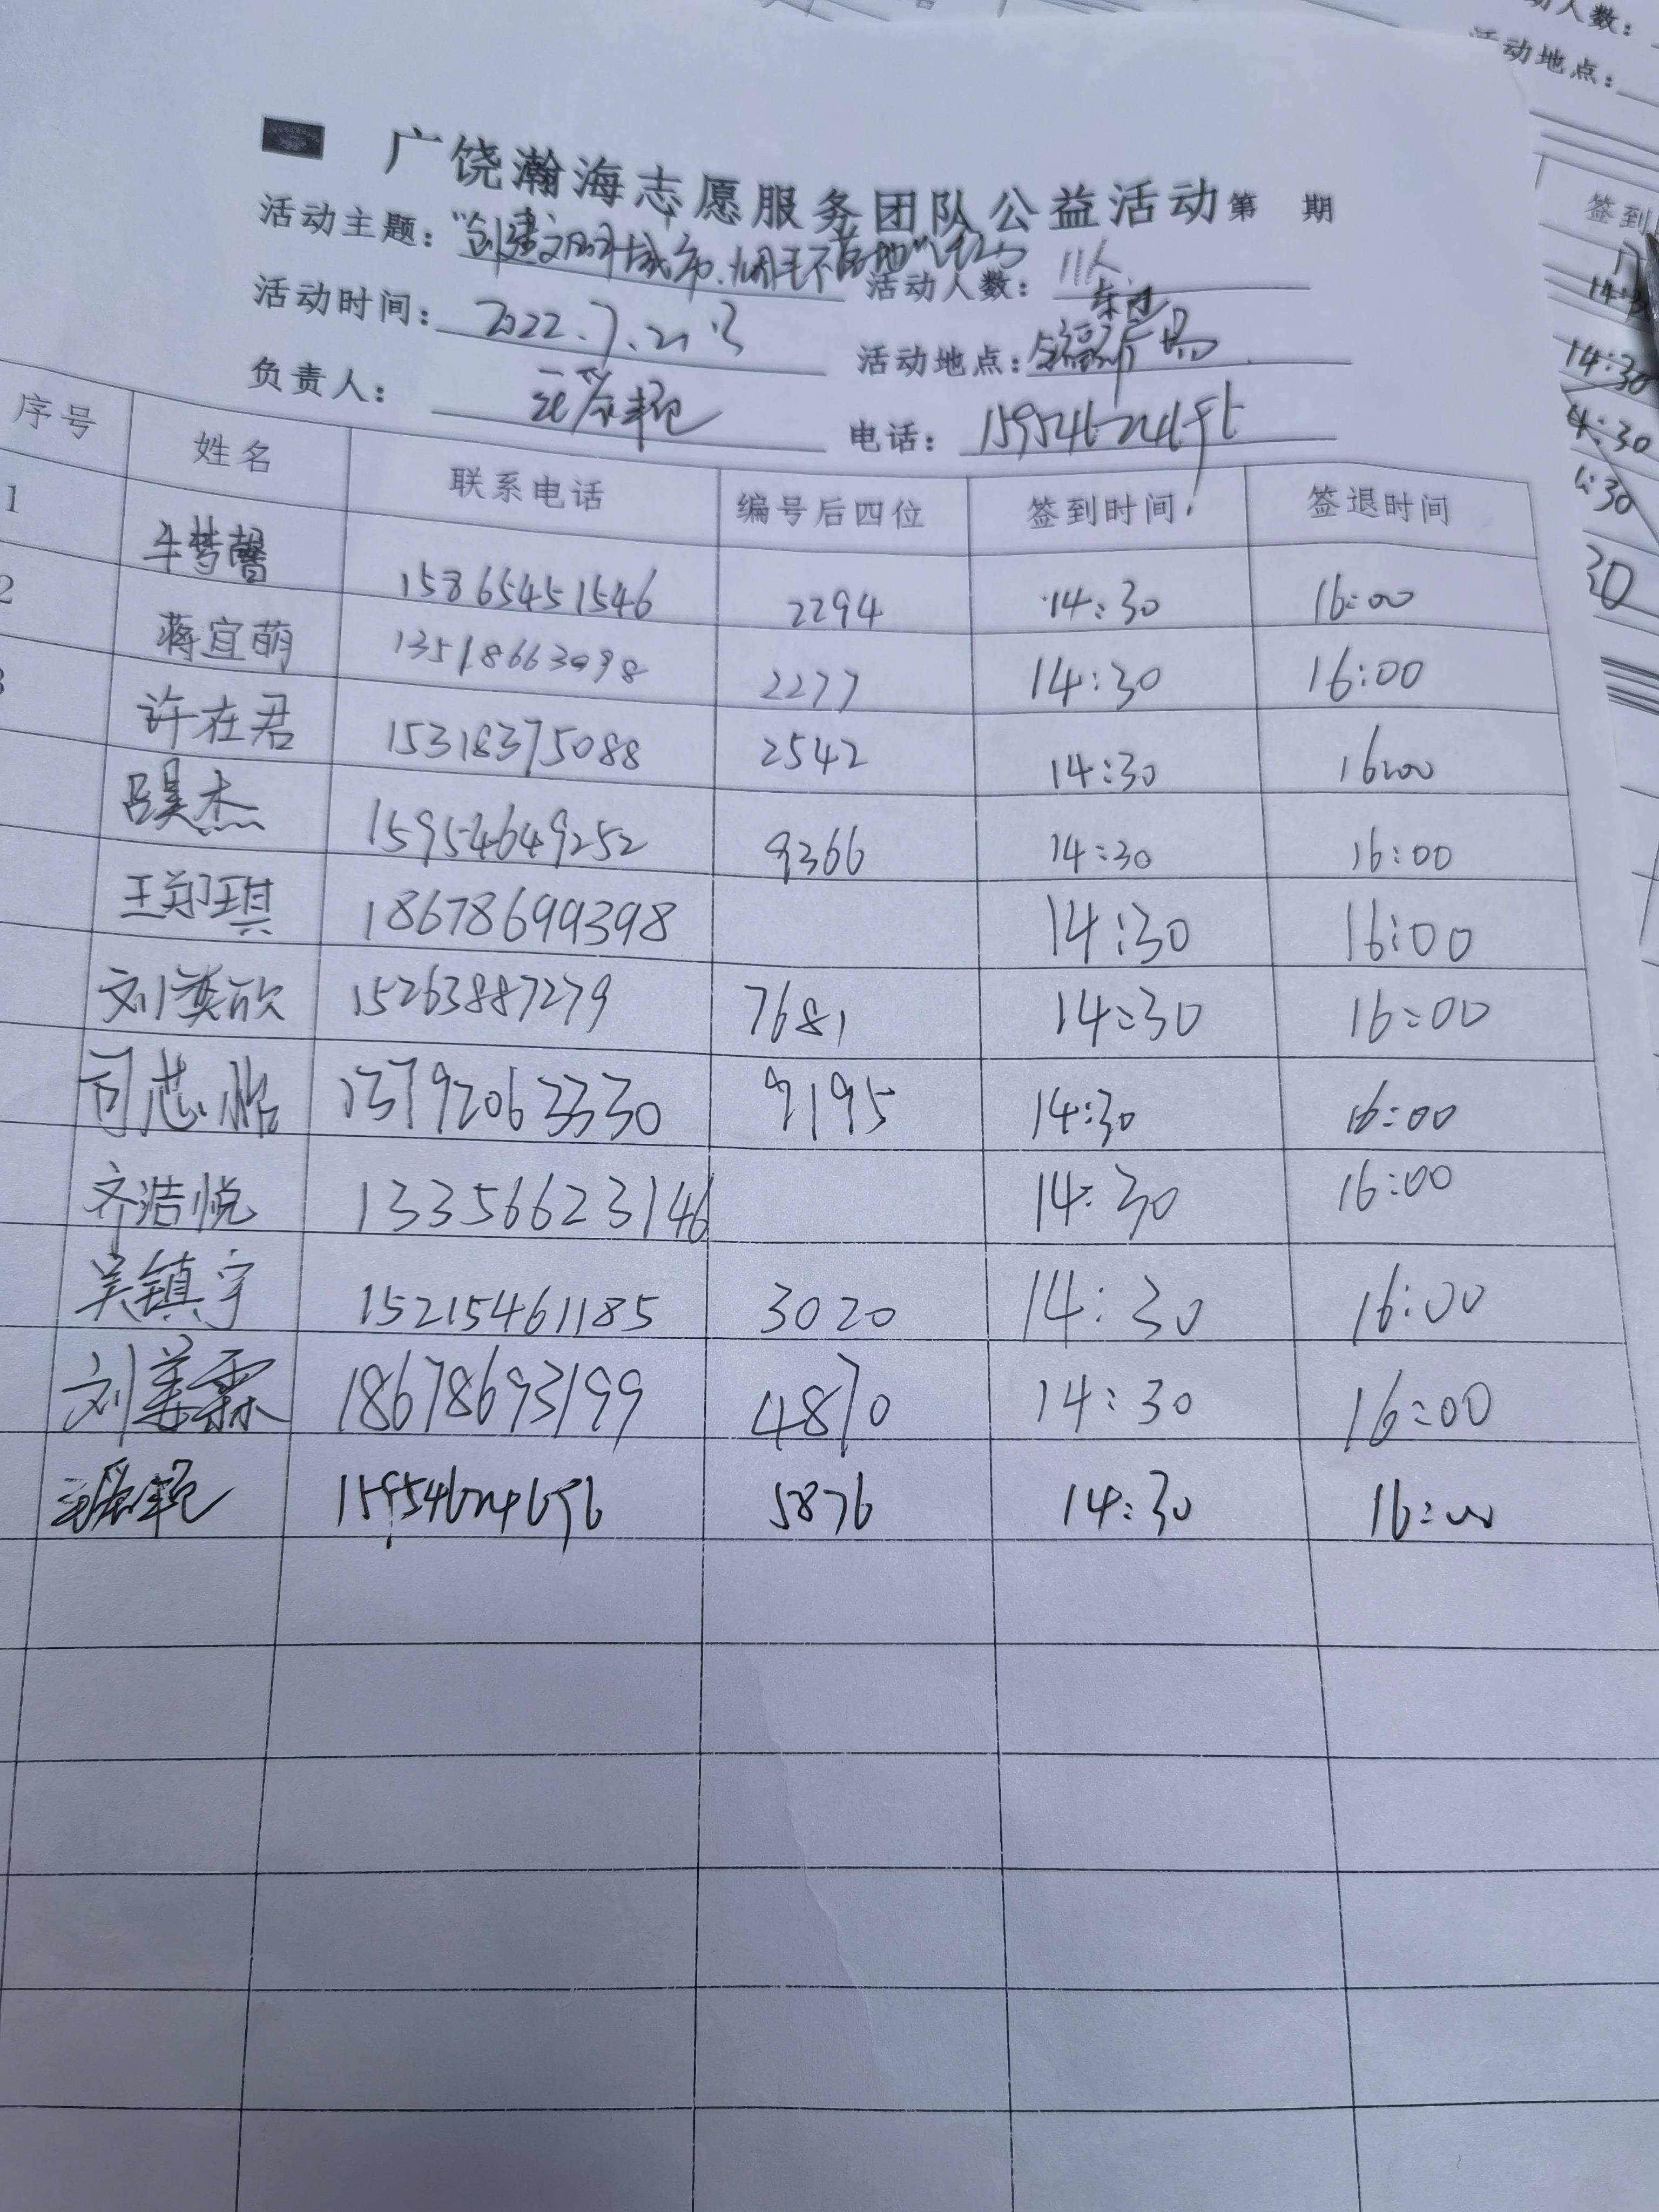 广饶瀚海志愿服务团队公益活动第 期
活动主题："创建文明城市、烟头不落地"活动
活动人数：11人
活动时间：2022.7.21
活动地点：
负责人：
电话：
序号 姓名 联系电话 编号后四位 签到时间 签退时间
1 牛梦馨 15865451546 2294 14:30 16:00
2 蒋宜萌 13518663098 2277 14:30 16:00
3 许在君 15318375088 2542 14:30 16:00
吕昊杰 15954649252 9366 14:30 16:00
王郑琪 18678699398 14:30 16:00
刘奕欣 15263887279 7681 14:30 16:00
司芯怡 13792063330 9195 14:30 16:00
齐浩悦 13356623146 14:30 16:00
吴镇宇 15215461185 3020 14:30 16:00
刘美霖 18678693199 4870 14:30 16:00
5876 14:30 16:00
动人数：
活动地点：
签到
14:30
14:30
30